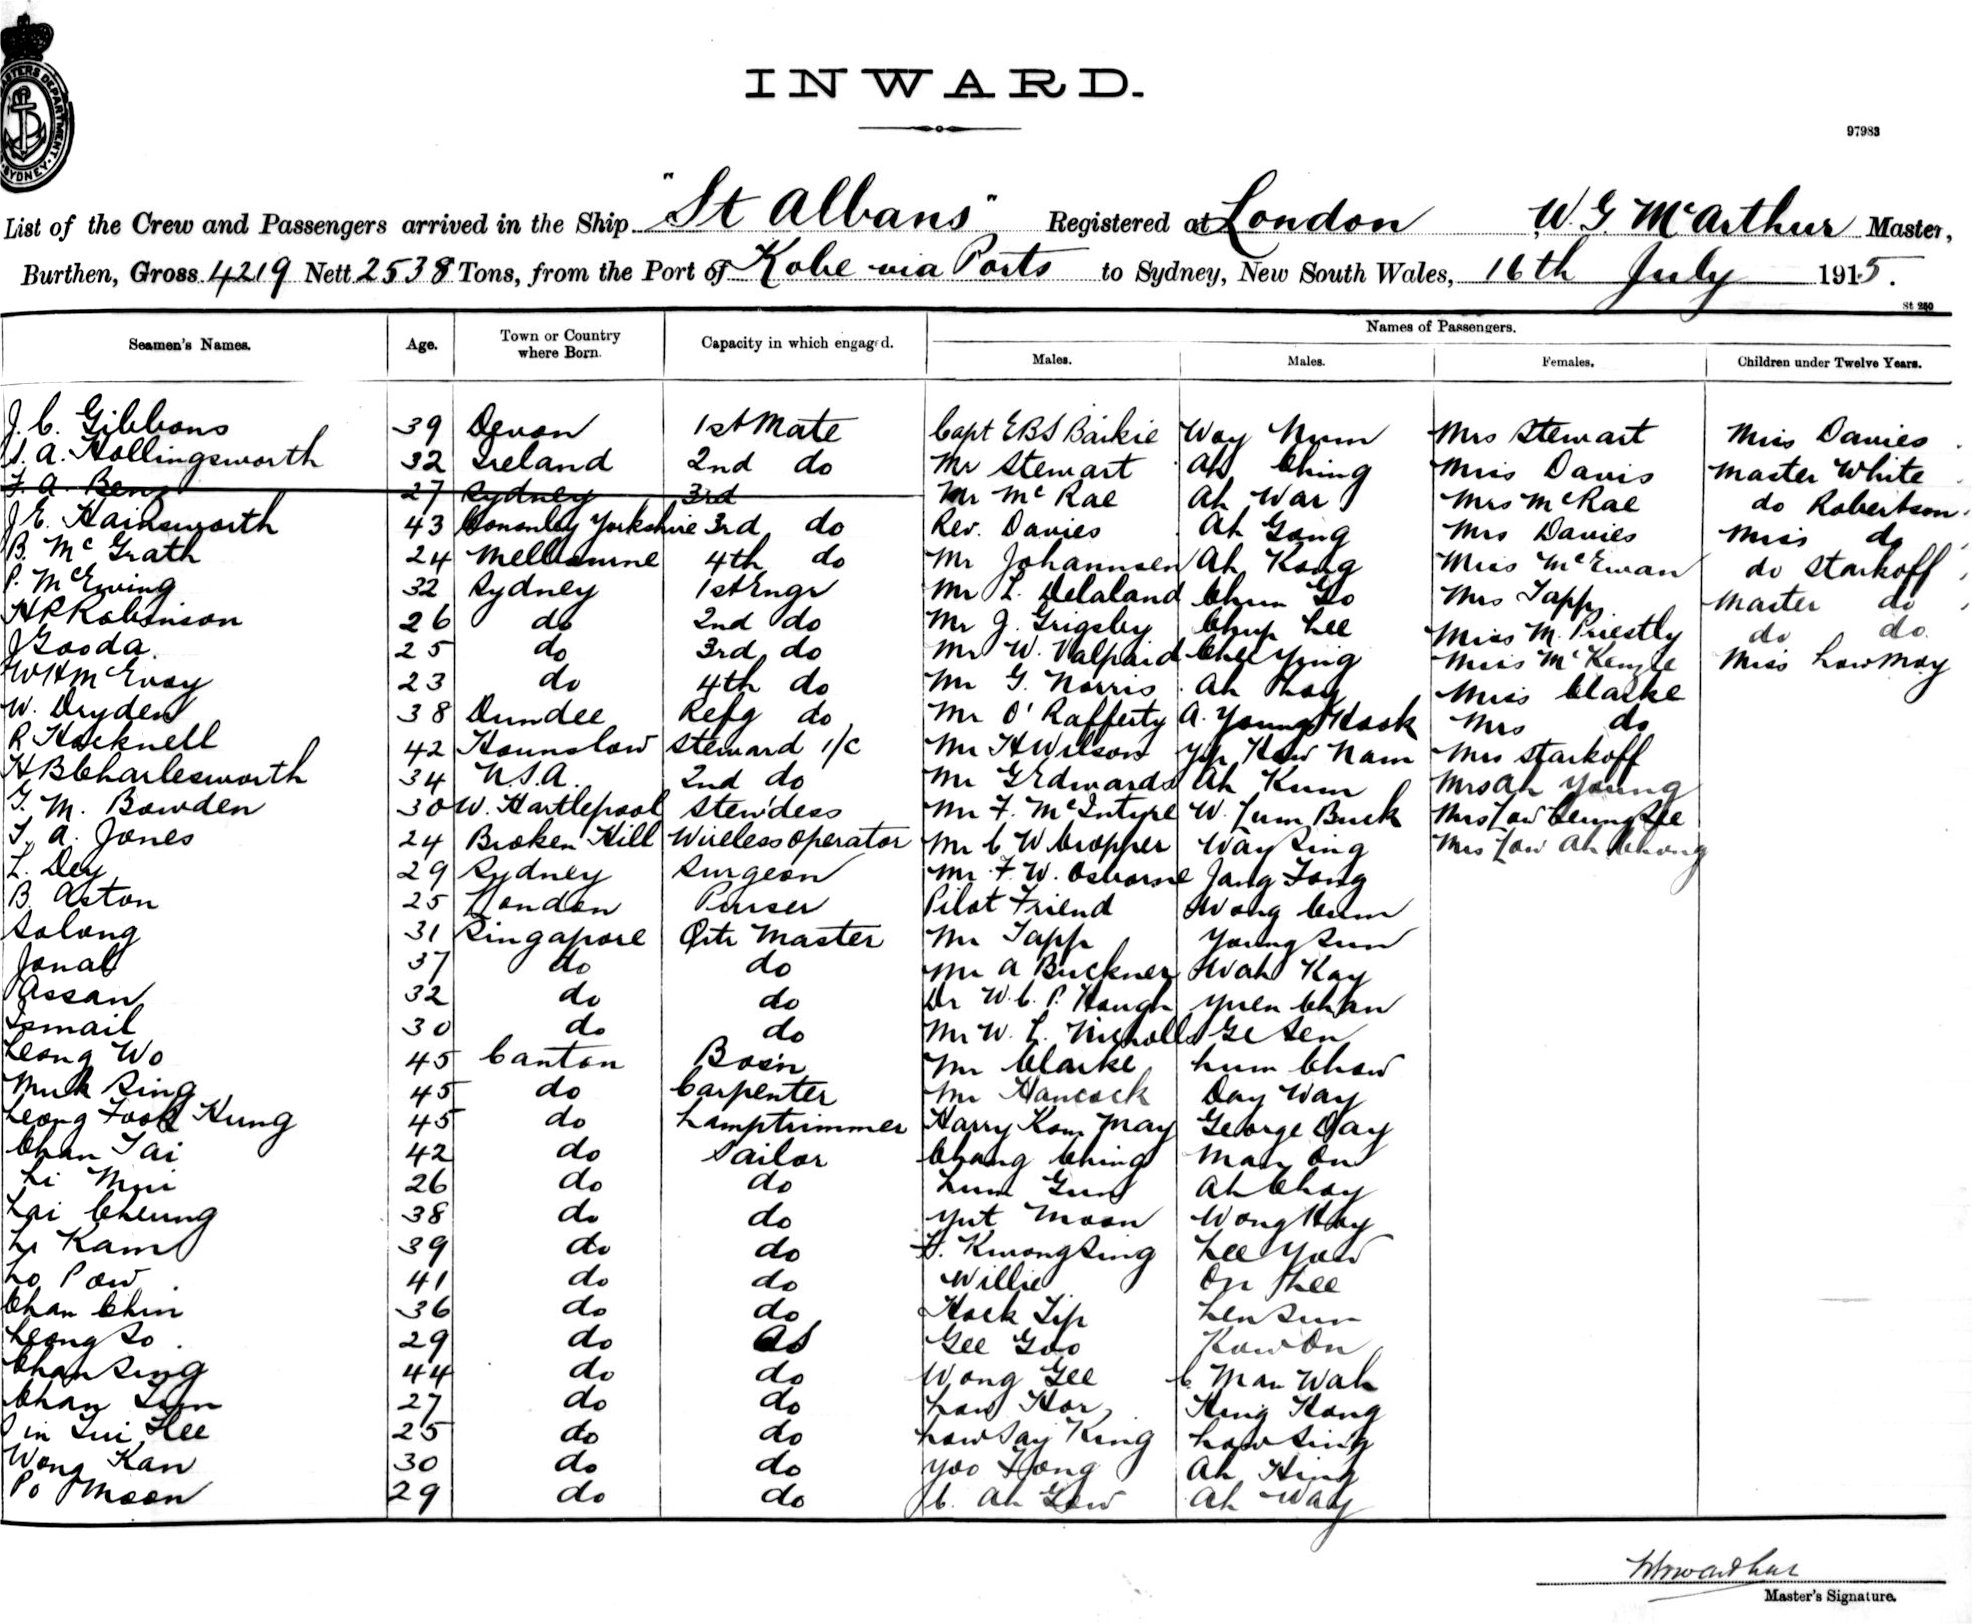 MASTERS DEPARTMENT
SYDNEY
INWARD.
97983
List of the Crew and Passengers arrived in the Ship "St Albans" Registered at London W. G. McArthur Master,
Burthen, Gross 4219 Nett 2538 Tons, from the Port of Kobe via Ports to Sydney, New South Wales, 16th July 1915.
St 250
Seamen's Names. Age. Town or Country where Born. Capacity in which engaged. Names of Passengers.
Males. Males. Females. Children under Twelve Years.
J. C. Gibbons 39 Devon 1st Mate Capt EBS Baikie Way Num Mrs Stewart Miss Davies
A. Hollingsworth 32 Ireland 2nd do Mr Stewart Ah Ching Miss Davis Master White
A. Benz 27 Sydney 3rd Mr McRae Ah War Mrs McRae do Robertson
J E. Hainsworth 43 Cononley Yorkshire 3rd do Rev. Davies Ah Gong Mrs Davies Miss do
B. McGrath 24 Melbourne 4th do Mr Johannsen Ah Kong Miss McEwan do Starkoff
P. McEwing 32 Sydney 1st Engr Mr L. Delaland Chun Go Mrs Tapp Master do
H R Robinson 26 do 2nd do Mr J. Grigsby Chup Lee Miss M. Priestly do do
J Gooda 25 do 3rd do Mr W. Valpaid Chee Ying Miss McKenzie Miss Low May
W H McEvoy 23 do 4th do Mr G. Norris Ah Hoy Miss Clarke
W. Dryden 38 Dundee Refg do Mr O'Rafferty A. Young Hook Mrs do
R Hocknell 42 Hounslow Steward i/c Mr H Wilson Yip How Nam Mrs Starkoff
H B Charlesworth 34 N.S.A. 2nd do Mr G Edwards Ah Kum Mrs Ah Young
G. M. Bowden 30 W. Hartlepool Stew'dess Mr F. McIntyre W. Lum Buck Mrs Low Cheung See
A. Jones 24 Broken Hill Wireless operator Mr C W Cropper Way Sing Mrs Low Ah Chong
L. Dey 29 Sydney Surgeon Mr F. W. Osborne Jang Fong
B. Aston 25 London Purser Pilot Friend Wong Cum
Solong 31 Singapore Qtr Master Mr Tapp Young Sun
Jonal 37 do do Mr A Buckner Wah Kay
Assan 32 do do Dr W. C. P. Hough Yuen Chan
Ismail 30 do do Mr W. L. Nicholls Ge Sen
Leong Wo 45 Canton Bos'n Mr Clarke Lum Chow
Muk Sing 45 do Carpenter Mr Hancock Day Way
Leong Fook Hung 45 do Lamptrimmer Harry Kom May George Day
Chan Tai 42 do Sailor Chang Ching Man On
Li Mui 26 do do Lum Gun Ah Choy
Lai Cheung 38 do do Yut Moon Wong Hoy
Li Kam 39 do do Kwong Sing Lee Yow
Lo Pow 41 do do Willie On Hee
Chan Chin 36 do do Hock Tip Len Sun
Leong So 29 do OS Gee Goo Kow On
Chan Sing 44 do do Wong Gee C. Man Wah
Chan Sun 27 do do Low Hor Hing Kong
Tui Hee 25 do do Low Say King Low Sing
Wong Kan 30 do do Yoo Hong Ah Hing
Po Moon 29 do do C. Ah Gow Ah Way
Master's Signature.